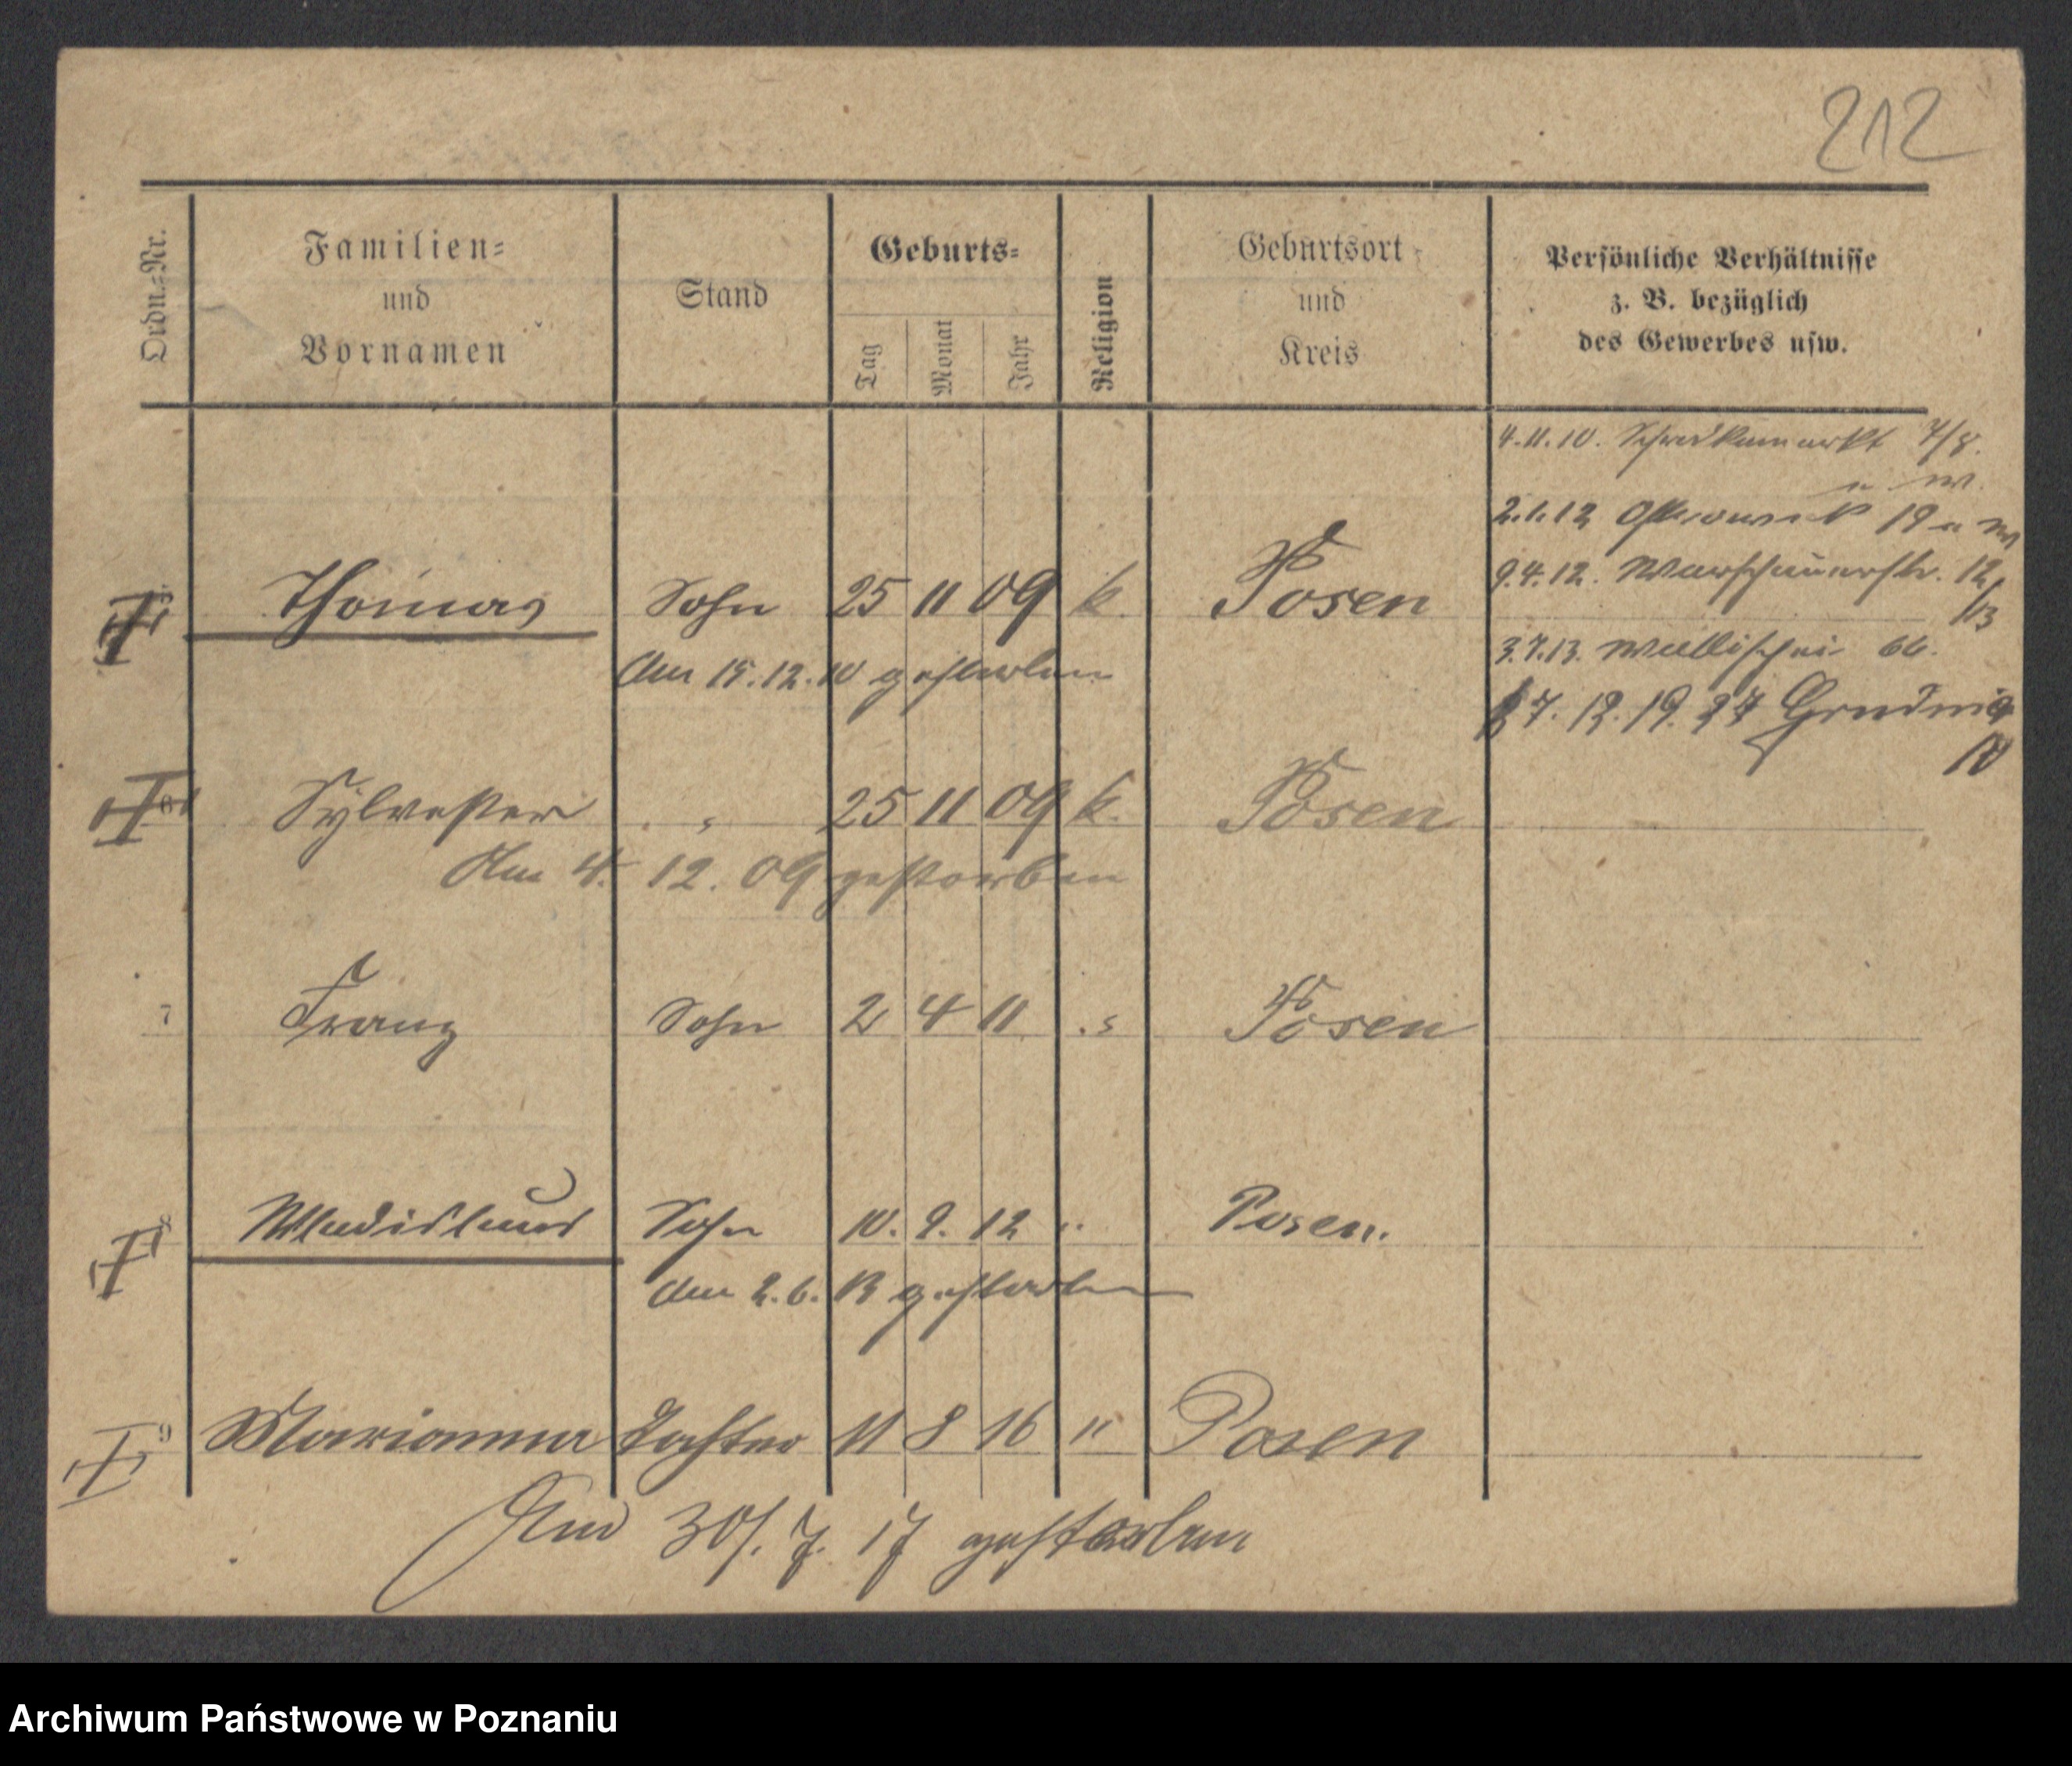 212
Ordn.-Nr.
Familien-
und
Vornamen
Stand
Geburts-
Tag
Monat
Jahr
Religion
Geburtsort
und
Kreis
Persönliche Verhältnisse
z. B. bezüglich
des Gewerbes usw.
4.11.10. 7/8.
2.1.12 19
9.4.12. Warschauerstr. 12/13
3.7.13. Wallischei 66.
Thomas Sohn 25 11 09 k. Posen
Am 15.12.10 gestorben
12.19. 10
6 Sylvester " 25 11 09 k. Posen
Am 4. 12. 09 gestorben
7 Franz Sohn 2 4 11 " Posen
8 Wladislaus Sohn 10. 9. 12 " Posen.
Am 2.6.13 gestorben
9 Marianna Tochter 11 8 16 " Posen
Am 30/. 7. 17 gestorben
Archiwum Państwowe w Poznaniu